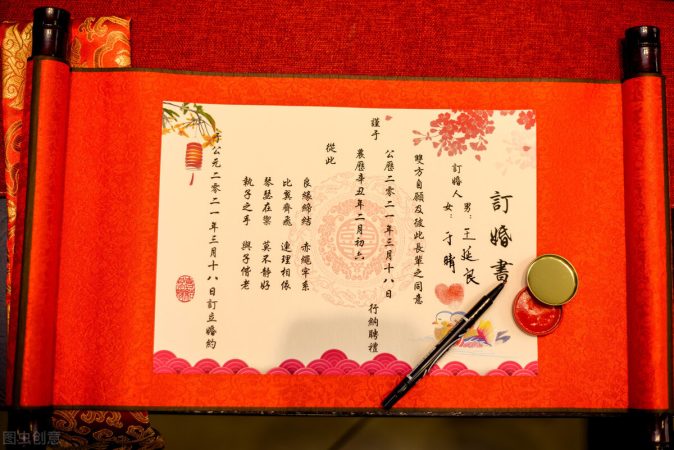 訂婚書
訂婚人 男：王延良
女：于晴
雙方自願及彼此長輩之同意
謹于 公曆二零二一年三月十八日 行納聘禮
農曆辛丑年二月初六
從此
良緣締結 赤繩牢系
比翼齊飛 連理相依
琴瑟在禦 莫不靜好
執子之手 與子偕老
于公元二零二一年三月十八日訂立婚約
图虫创意